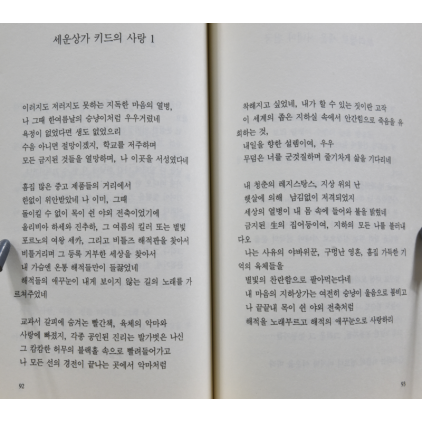 세운상가 키드의 사랑 1
이러지도 저러지도 못하는 지독한 마음의 열병,
나 그때 한여름날의 승냥이처럼 우우거렸네
욕정이 없었다면 생도 없었으리
수음 아니면 절망이겠지, 학교를 저주하며
모든 금지된 것들을 열망하며, 나 이곳을 서성였다네
흠집 많은 중고 제품들의 거리에서
한없이 위안받았네 나 이미, 그때
돌이킬 수 없이 목이 쉰 야외 전축이었기에
올리비아 하세와 진추하, 그 여름의 킬러 또는 별빛
포르노의 여왕 세카, 그리고 비틀즈 해적판을 찾아서
비틀거리며 그 등록 거부한 세상을 찾아서
내 가슴엔 온통 해적들만이 들끓었네
해적들의 애꾸눈이 내게 보이지 않는 길의 노래를 가
르쳐주었네
교과서 갈피에 숨겨놓은 빨간책, 육체의 악마와
사랑에 빠졌지, 각종 공인된 진리는 발가벗은 나신
그 캄캄한 허무의 블랙홀 속으로 빨려들어가고
나 모든 선의 경전이 끝나는 곳에서 악마처럼
92
착해지고 싶었네, 내가 할 수 있는 짓이란 고작
이 세계의 좁은 지하실 속에서 안간힘으로 죽음을 유
희하는 것,
내일을 향한 설렘이여, 우우
무덤은 너를 군것질하며 줄기차게 삶을 기다리네
내 청춘의 레지스탕스, 지상 위의 난
햇살에 의해 남김없이 처형되었지
세상의 열병이 내 몸 속에 들어와 불을 밝혔네
금지된 生의 집어등이여, 지하의 모든 나를 불러내
다오
나는 사유의 야바위꾼, 구멍난 영혼, 흠집 가득한 기
억의 육체들을
별빛의 찬란함으로 팔아먹는다네
내 마음의 지하상가는 여전히 승냥이 울음으로 붐비고
나 끝끝내 목이 쉰 야외 전축처럼
해적을 노래부르고 해적의 애꾸눈으로 사랑하리
93